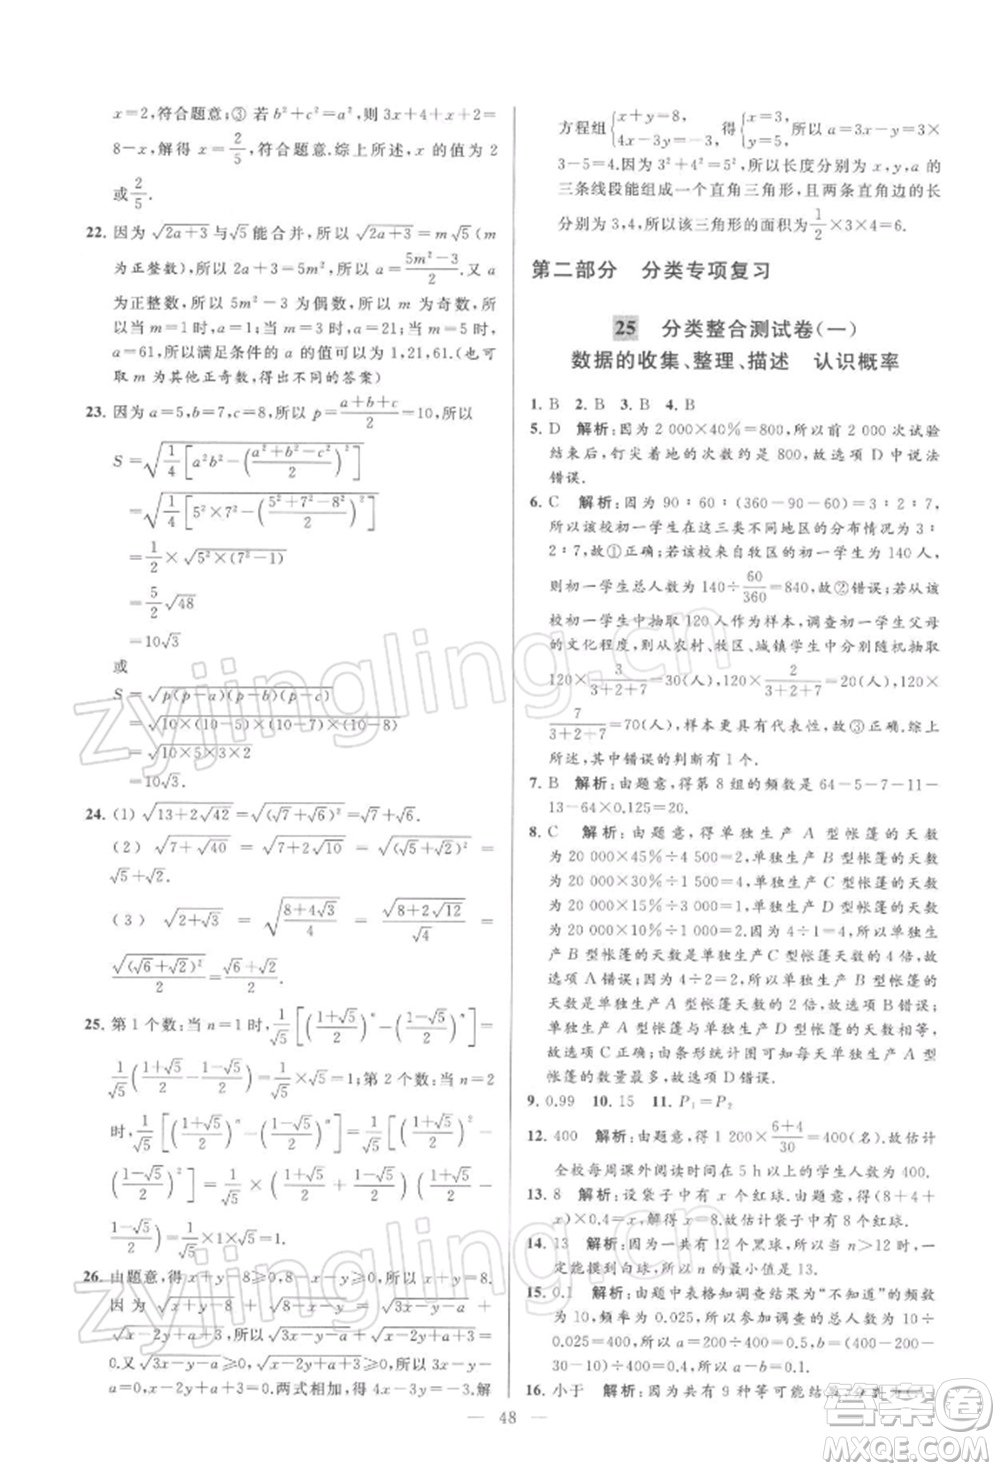 x=2,符合题意;③ 若 b²+c²=a²,则 3x+4+x+2=
8-x,解得 x=2/5,符合题意.综上所述,x 的值为 2
或2/5.
22. 因为√(2a+3)与√5能合并,所以√(2a+3)=m√5(m
为正整数),所以 2a+3=5m²,所以 a=(5m²-3)/2.因为 a
为正整数,所以 5m²-3 为偶数,所以 m 为奇数,所
以当 m=1 时,a=1;当 m=3 时,a=21;当 m=5 时,
a=61,所以满足条件的 a 的值可以为 1,21,61.(也可
取 m 为其他正奇数,得出不同的答案)
23. 因为 a=5,b=7,c=8,所以 p=(a+b+c)/2=10,所以
S=√(1/4[a²b²-((a²+b²-c²)/2)²])
=√(1/4[5²×7²-((5²+7²-8²)/2)²])
=1/2×√(5²×(7²-1))
=5/2√48
=10√3
或
S=√(p(p-a)(p-b)(p-c))
=√(10×(10-5)×(10-7)×(10-8))
=√(10×5×3×2)
=10√3.
24. (1) √(13+2√42)=√((√7+√6)²)=√7+√6.
(2) √(7+√40) = √(7+2√10) = √((√5+√2)²) =
√5+√2.
(3) √(2+√3) = √((8+4√3)/4) = √(8+2√12)/√4 =
√((√6+√2)²)/2=(√6+√2)/2.
25. 第 1 个数:当 n=1 时,1/√5[((1+√5)/2)ⁿ-((1-√5)/2)ⁿ]=
1/√5((1+√5)/2-(1-√5)/2)=1/√5×√5=1;第 2 个数:当 n=2
时,1/√5[((1+√5)/2)ⁿ-((1-√5)/2)ⁿ]=1/√5[((1+√5)/2)²-
((1-√5)/2)²]=1/√5×((1+√5)/2+(1-√5)/2)((1+√5)/2-
(1-√5)/2)=1/√5×1×√5=1.
26. 由题意,得 x+y-8≥0,8-x-y≥0,所以 x+y=8.
因为 √(x+y-8)+√(8-x-y)=√(3x-y-a)+
√(x-2y+a+3),所以√(3x-y-a)+√(x-2y+a+3)=
0.又√(3x-y-a)≥0,√(x-2y+a+3)≥0,所以 3x-y-a=
0,x-2y+a+3=0.两式相加,得 4x-3y=-3.解
方程组{x+y=8, 4x-3y=-3,得{x=3, y=5,所以 a=3x-y=3×
3-5=4.因为 3²+4²=5²,所以长度分别为 x,y,a 的
三条线段能组成一个直角三角形,且两条直角边的长
分别为 3,4,所以该三角形的面积为1/2×3×4=6.
第二部分 分类专项复习
25 分类整合测试卷(一)
数据的收集、整理、描述 认识概率
1. B 2. B 3. B 4. B
5. D 解析:因为 2 000×40%=800,所以 2 000 次试验
结束后,钉尖着地的次数约是 800,故选项 D 中说法
错误.
6. C 解析:因为 90∶60∶(360-90-60)=3∶2∶7,
所以该校初一学生在这三类不同地区的分布情况为 3∶
2∶7,故①正确;若该校来自牧区的初一学生为 140 人,
则初一学生总人数为 140÷60/360=840,故②错误;若从该
校初一学生中抽取 120 人作为样本,调查初一学生父母
的文化程度,则从农村、牧区、城镇学生中分别随机抽取
120×3/(3+2+7)=30(人),120×2/(3+2+7)=20(人),120×
7/(3+2+7)=70(人),样本更具有代表性,故③正确.综上
所述,其中错误的判断有 1 个.
7. B 解析:由题意,得第 8 组的频数是 64-5-7-11-
13-64×0.125=20.
8. C 解析:由题意,得单独生产 A 型帐篷的天数
为 20 000×45%÷4 500=2,单独生产 B 型帐篷的天数
为 20 000×15%÷1 000=3,单独生产 C 型帐篷的天数
为 20 000×30%÷1 500=4,单独生产 D 型帐篷的天数
为 20 000×10%÷1 000=2.因为 4÷1=4,所以单独生产
C 型帐篷的天数是单独生产 A 型帐篷天数的 4 倍,故
选项 A 错误;因为 4÷2=2,所以单独生产 C 型帐篷的
天数是单独生产 A 型帐篷天数的 2 倍,故选项 B 错误;
单独生产 A 型帐篷与单独生产 D 型帐篷的天数相等,故
选项 C 正确;由条形统计图可知每天单独生产 A 型帐
篷的数量最多,故选项 D 错误.
9. 0.99 10. 15 11. P₁=P₂
12. 400 解析:由题意,得 1 200×(6+4)/30=400(名).故估计
全校每周课外阅读时间在 5 h 以上的学生人数为 400.
13. 8 解析:设袋子中有 x 个红球.由题意,得(8+4+
x)×0.4=x,解得 x=8.故估计袋子中有 8 个红球.
14. 13 解析:因为一共有 12 个黑球,所以当 n>12 时,一
定能摸到白球,所以 n 的最小值是 13.
15. 0.1 解析:由于表格知调查结果为“不知道”的频数
为 10,频率为 0.025,所以调查的总人数为 10÷
0.025=400,所以 a=200÷400=0.5,b=(400-200-
10)÷400=0.4,所以 a-b=0.1.
16. 小于 解析:因为共有 9 种等可能结
48